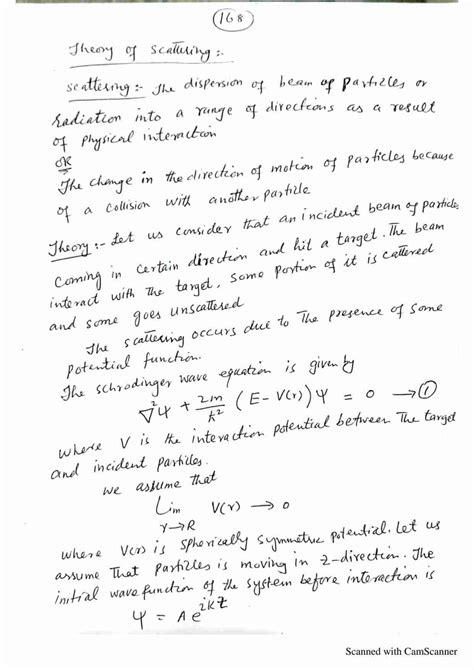 168
Theory of Scattering :-
Scattering :- The dispersion of beam of particles or
radiation into a range of directions as a result
of physical interaction
OR
The change in the direction of motion of particles because
of a collision with another particle
Theory :- Let us consider that an incident beam of particle
coming in certain direction and hit a target. The beam
interact with the target, some portion of it is cattered
and some goes unscattered
The scattering occurs due to The presence of some
potential function.
The schrodinger wave equation is given by
∇²Ψ + 2m/ħ² (E - V(r)) Ψ = 0 → ①
where V is the interaction potential between The target
and incident particles.
we assume that
Lim V(r) → 0
r→R
where V(r) is spherically symmetric potential. Let us
assume That particles is moving in Z-direction. The
initial wave function of the system before interaction is
Ψ = A e^{ikz}
Scanned with CamScanner